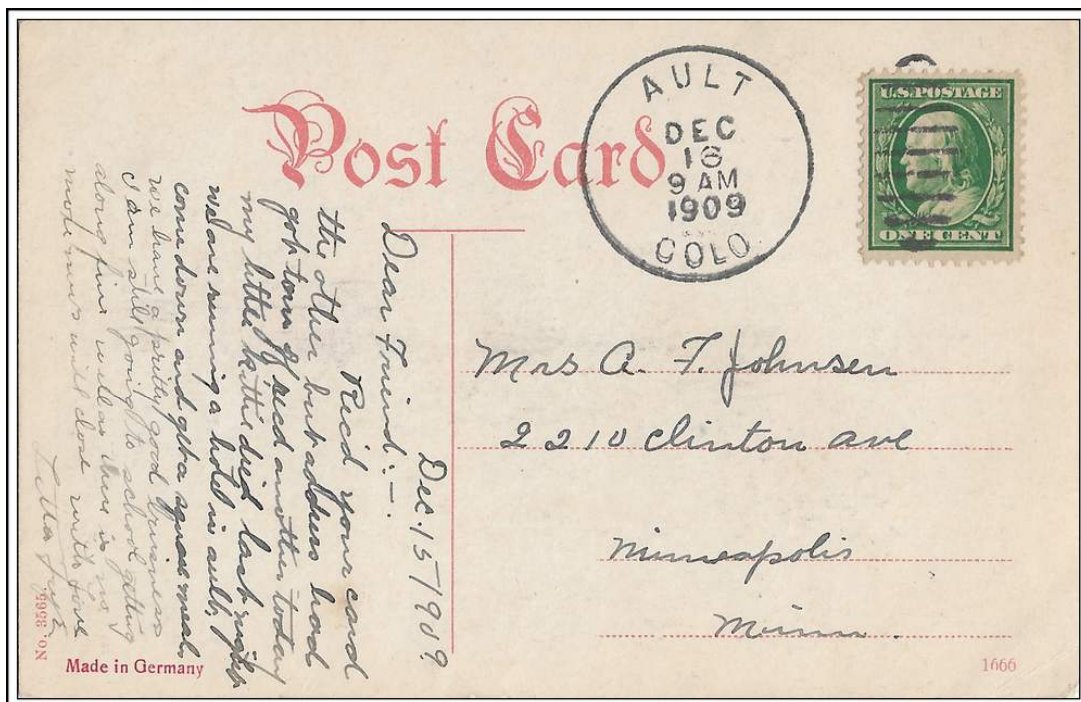 Post Card
AULT
DEC
16
9 AM
1909
COLO.
U.S. POSTAGE
ONE CENT
Mrs A. F. Johnsen
2210 Clinton Ave
Minneapolis
Minn.
Dec. 15 1909
Dear Friend:-
Rec'd your card
the other but address had
got torn off rec'd another today
my little kittie died last night
we are runing a hotel in ault,
come down and get a square meal,
we have a pretty good business
I am still going to school getting
along fine well as there is no
more news will close with love
Made in Germany
No. 3565.
1666